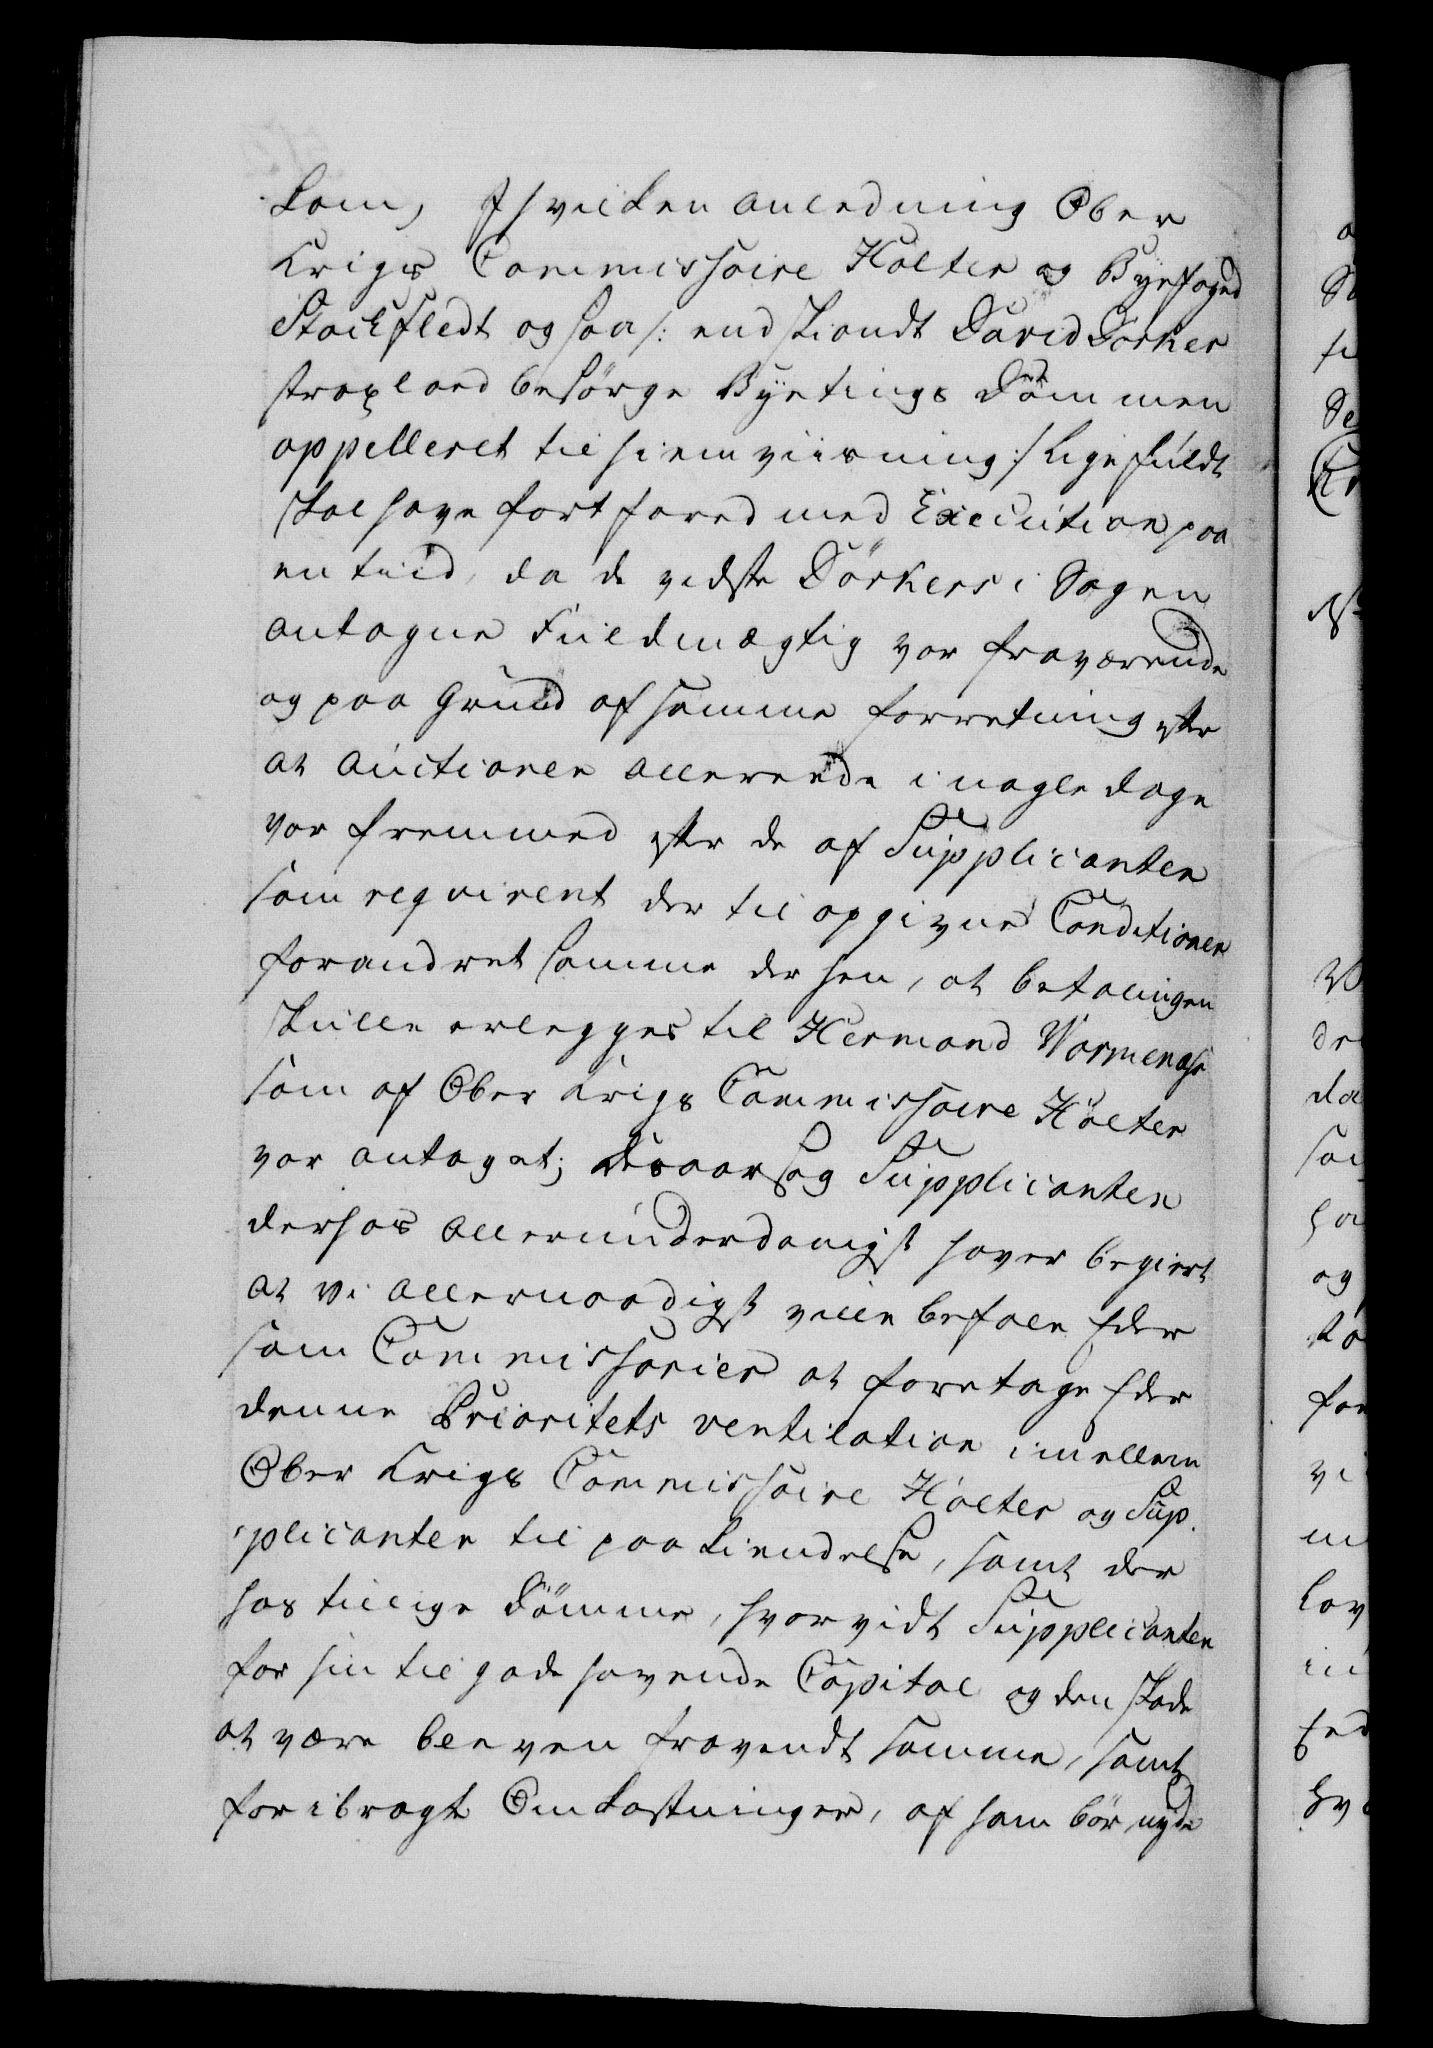 kom, I hvilken anledning Ober
Krigs Commissaire Holter og Byefoged
Stockfledt ogsaa /: endskiøndt David Dörker
strax lod besörge Byetings Dommen
appelleret til hiemviisning :/ ligefuldt
skal have fortfared med Execution paa
en tiid, da de vidste Dörkers i Sagen
antagne Fuldmægtig var fraværende
og paa Grund af samme forretning efter
at auctionen allereede i nogle dage
var fremmed efter de af Supplicanten
som reqvirent der til opgivne Conditioner
forandret samme der hen, at betalingen
skulle erlegges til Hermand
som af Ober Krigs Commissaire Holter
var antaget; Desaarsag Supplicanten
derhos allerunderdanigst haver begiert
at Vi allernaadigst ville befale Eder
som Commissarier at foretage Eder
denne Prioritets ventilation imellem
Ober Krigs Commissaire Holter og Sup-
plicanten til paakiendelse, samt der
hos tillige dömme, hvorvidt Supplicanten
for sin tilgode havende Capital og den skade
at være bleven fravendt samme, samt
foraarsagede Omkostninger, af ham bör nyde